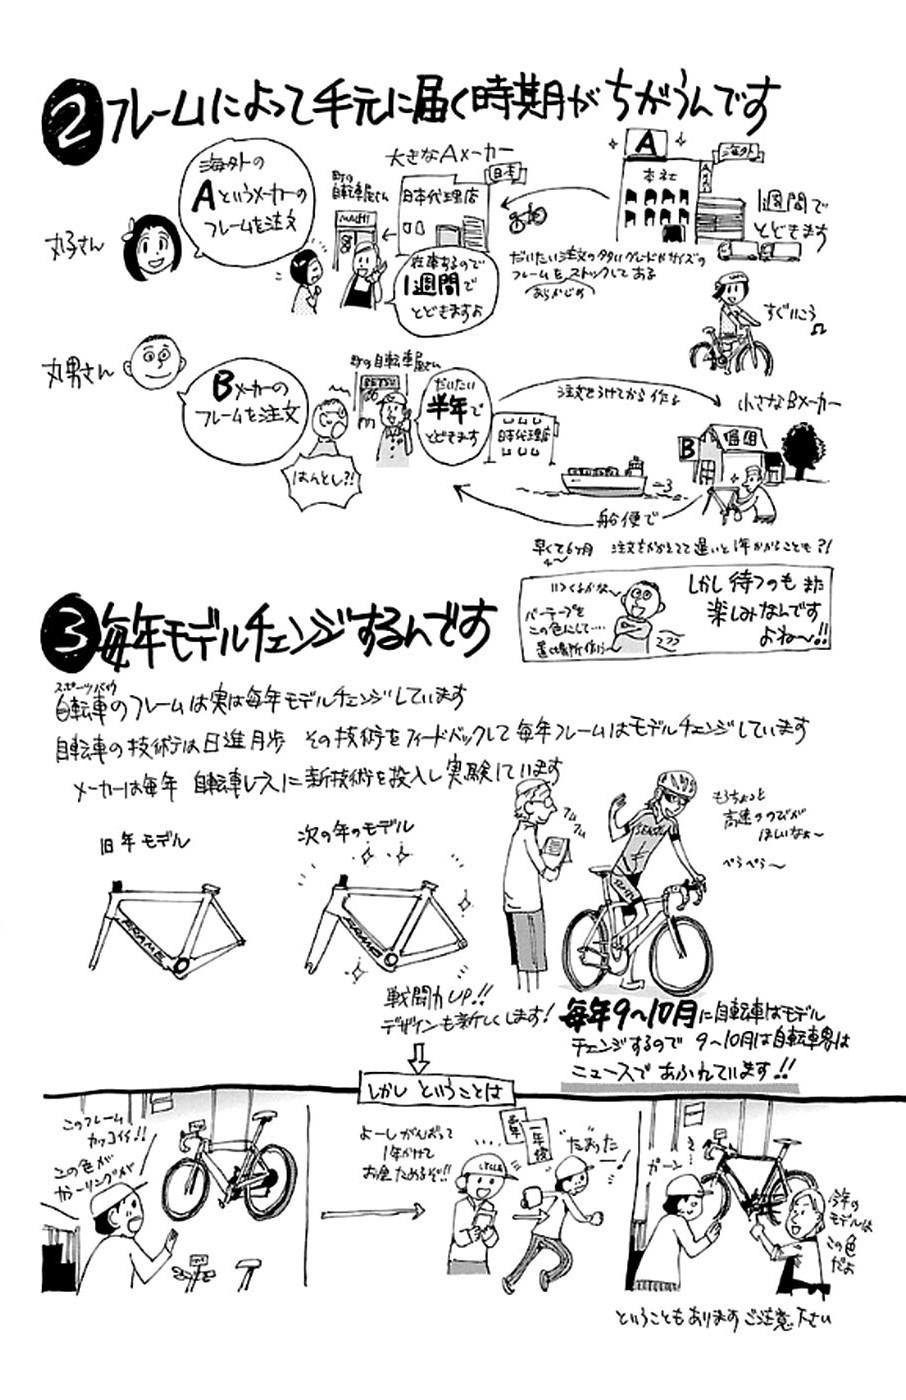 ② フレームによって手元に届く時期がちがうんです
丸子さん
海外の
Aというメーカーの
フレームを注文
町の
自転車屋さん
大きなAメーカー
日本
日本代理店
在庫するので
1週間で
とどきますよ
A
海外
本社
1週間で
とどきます
だいたい注文の多いグレードやサイズの
フレームをストックしてある
あらかじめ
すぐいこう
丸男さん
Bメーカーの
フレームを注文
はんとし?!
町の自転車屋さん
だいたい
半年で
とどきます
日本代理店
注文をうけてから作る
小さなBメーカー
B
船便で
早くて6ヶ月 注文をかかえてて遅いと1年かかることも?!
いつくるかな〜
バーテープを
この色にして‥‥
置き場所作ろ〜
フフフ
しかし待つのもまた
楽しみなんです
よね〜!!
③ 毎年モデルチェンジするんです
スポーツバイク
自転車のフレームは実は毎年モデルチェンジしています
自転車の技術は日進月歩 その技術をフィードバックして毎年フレームはモデルチェンジしています
メーカーは毎年 自転車レースに新技術を投入し実験しています
旧年モデル
FRAME
次の年のモデル
FRAME
戦闘力UP!!
デザインも新しくします!
フム
フム
もうちょっと
高速ののびが
ほしいなぁ〜
ぺらぺら〜
毎年9〜10月に自転車はモデル
チェンジするので 9〜10月は自転車界は
ニュースであふれています!!
しかし ということは
このフレーム
カッコイイ!!
この色が
カラーリングが
よーしがんばって
1年かけて
お金ためるぞ!!
一年後
たまった
ー!
ガーン‥
今年の
モデルは
この色
だよ
ということもあります ご注意下さい